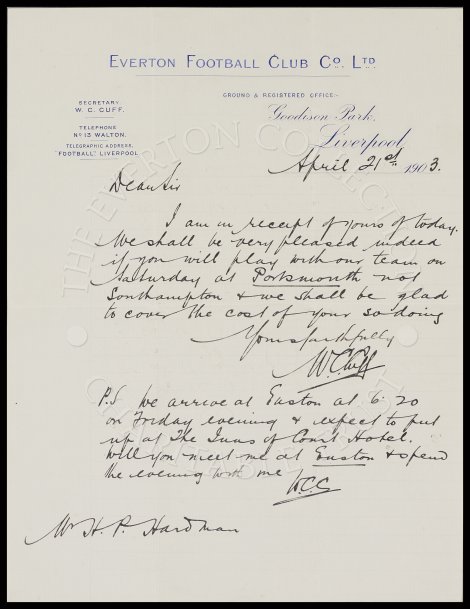 EVERTON FOOTBALL CLUB CO. LTD.
GROUND & REGISTERED OFFICE:-
SECRETARY
W. C. CUFF.
Goodison Park,
TELEPHONE
NO 13 WALTON.
Liverpool,
TELEGRAPHIC ADDRESS,
"FOOTBALL", LIVERPOOL
April 21st 1903.
Dear Sir
I am in receipt of yours of today.
We shall be very pleased indeed
if you will play with our team on
Saturday at Portsmouth not
Southampton & we shall be glad
to cover the cost of your so doing
Yours faithfully
W C Cuff
P.S we arrive at Euston at 6.20
on Friday evening & expect to put
up at The Inns of Court Hotel.
Will you meet me at Euston & spend
the evening with me
W.C.C
Mr H. P. Hardman
THE EVERTON COLLECTION